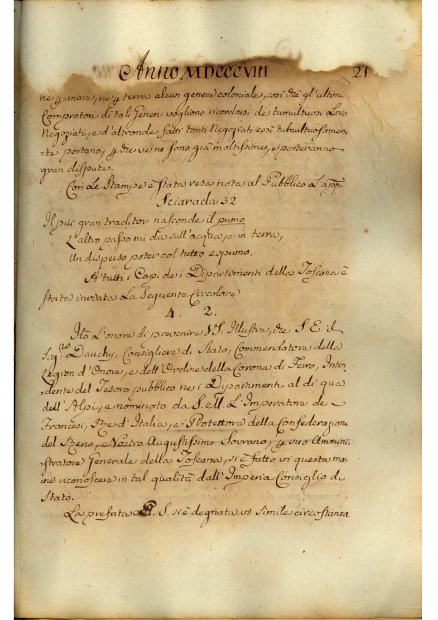 Anno MDCCCVIII 21
ne p mare, ne p terra alcun genere coloniale, così che gl'ultimi
Compratori di tali Generi vogliono ricordarsi de tumultuosi Loro
Negoziati, e d'altronde fatti tanti Negoziati così tumultuosamen
te portano, p che ve ne sono già moltissime, e porteranno
gran dispute.
Con le Stampe è stata resa nota al Pubblico L'app.
Sciarada 32
Il più gran traditor nasconde il primo
L'altro passo mi dà sull'acqua, e in terra,
Un disperso poter col tutto esprimo.
A tutti i Capi de i Dipartimenti della Toscana è
stata inviata La seguente Circolare
4. 2.
Ho L'onore di prevenire SS. Illustre, che S. E. il
Sig. Dauchy, Consigliere di Stato, Commendatore della
Legion d'Onore, e dell'Ordine della Corona di Ferro, Inten
dente del Tesoro pubblico ne i Dipartimenti al di qua
dell'Alpi, e nominato da S. M. L'Imperatore de
Francesi, Re d'Italia, e Protettore della Confederazione
del Reno, e Nostro Augustissimo Sovrano, p suo Ammini
stratore Generale della Toscana, si è fatto in questa mat
ine riconoscere in tal qualità dall'Imperial Consiglio di
Stato.
La prefata E. S. si è degnata in simile circostanza